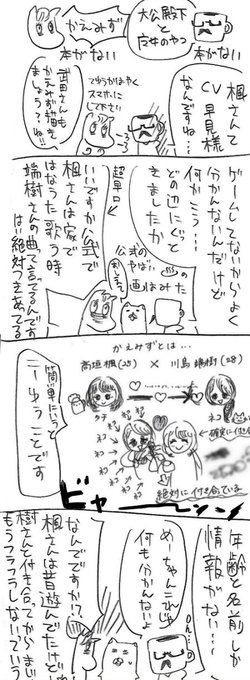 大公殿下
と
アホのやつ
かえみず
本がない
本がない
楓さんて
CV早見様
なんですね…
てゆうかはやく
スマホに
して下さい
武田さんも
かえみず描き
ましょう？ね!!
ゲームしてないからよく
分かんないんだけど
何かこう…
どの辺にぐっと
きましたか
超早口
公式の
やばい
画はみた
いいですか公式で
楓さんは家で
はなうた歌う時
端樹さんの曲って言ってるんです
は？絶対つきあってる
かえみずとは…
高垣楓(25) × 川島瑞樹(28)
タチ
ネコ
ネコ
ネコ
ネコ
ネコ
絶対に付き合っている
簡単にいうと
こーゆうことです
ビャーーン
年齢と名前しか
情報がない…
めーちゃんこれじゃ
何も分かんないよ
なんでですか!?
楓さんは昔遊んでたけど
樹さんと付き合ってからまじ
もうフラフラしないでいう